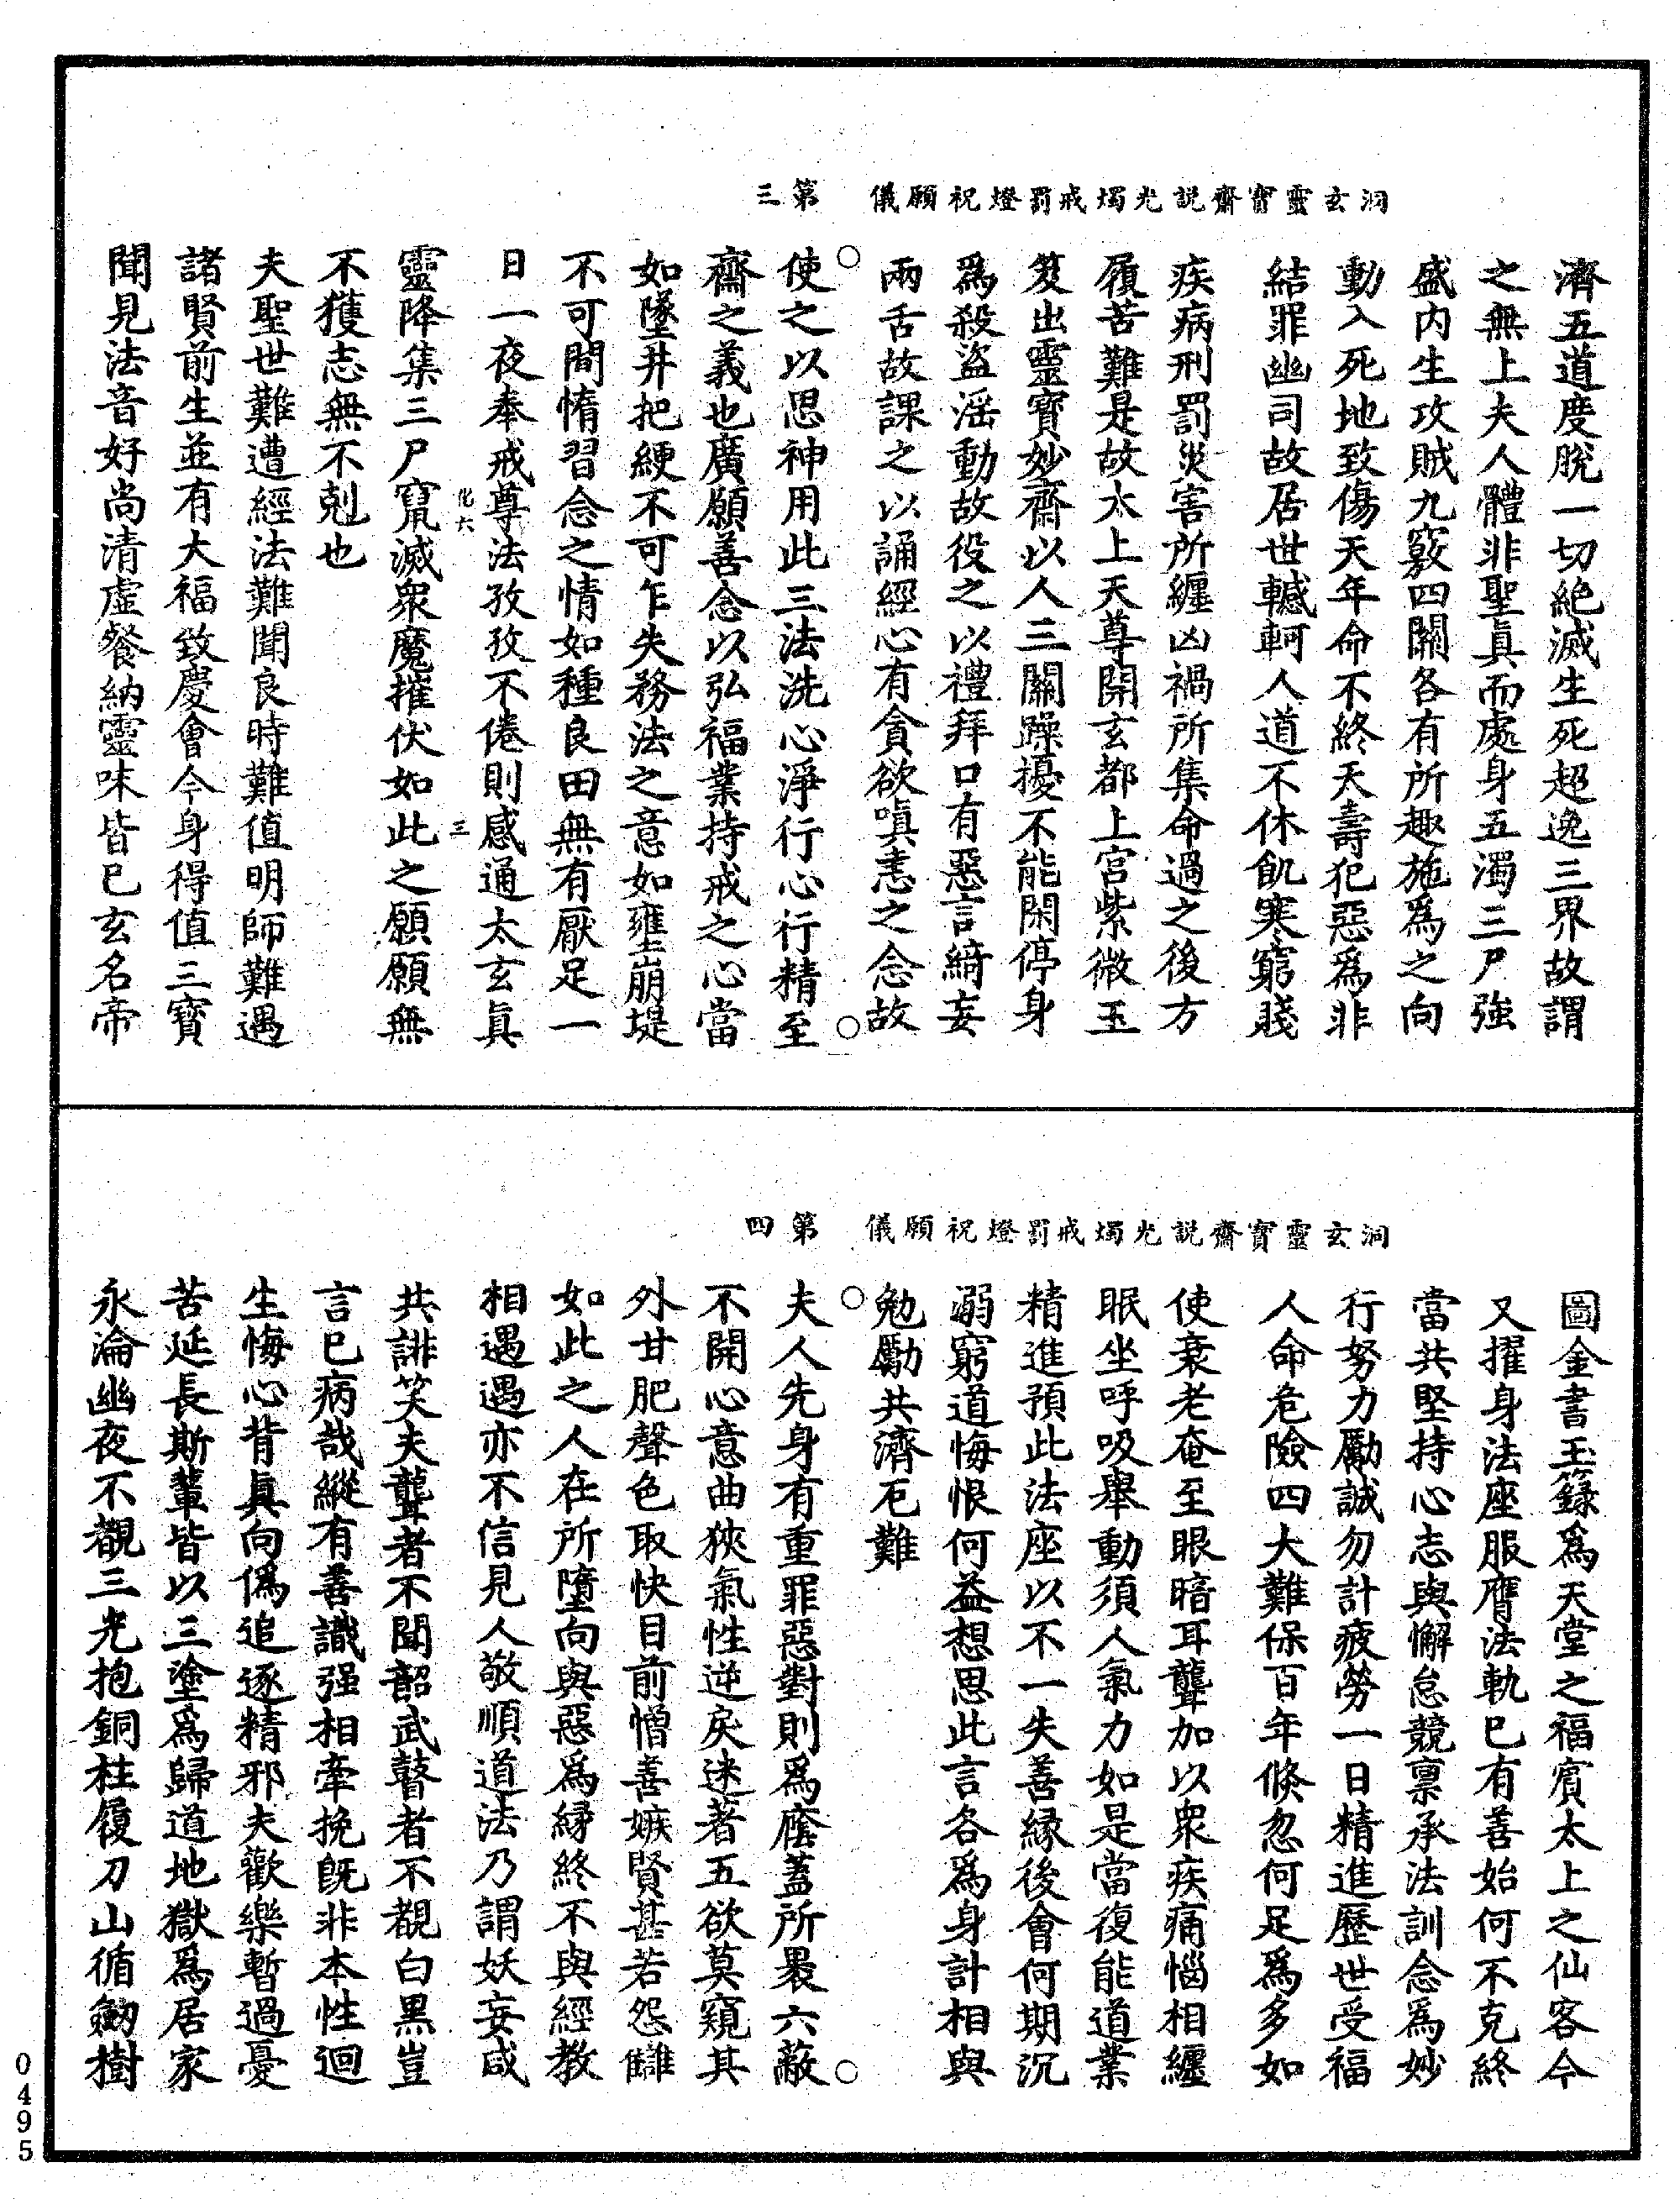 洞玄靈寶齋說光燭戒罰燈祝願儀　第三
濟五道度脫一切絶滅生死超逸三界故謂
之無上夫人體非聖眞而處身五濁三尸強
盛内生攻賊九竅四關各有所趣施爲之向
動入死地致傷天年命不終天壽犯惡爲非
結罪幽司故居世轗軻人道不休飢寒窮賤
疾病刑罰災害所纏凶禍所集命過之後方
履苦難是故太上天尊開玄都上宮紫微玉
笈出靈寶妙齋以人三關躁擾不能閑停身
爲殺盜淫動故役之以禮拜口有惡言綺妄
兩舌故課之以誦經心有貪欲嗔恚之念故
使之以思神用此三法洗心淨行心行精至
齋之義也廣願善念以弘福業持戒之心當
如墜井把綆不可乍失務法之意如壅崩堤
不可間惰習念之情如種良田無有厭足一
日一夜奉戒尊法孜孜不倦則感通太玄眞
化六　三
靈降集三尸竄滅衆魔摧伏如此之願願無
不獲志無不剋也
夫聖世難遭經法難聞良時難值明師難遇
諸賢前生並有大福致慶會今身得值三寶
聞見法音好尚清虛餐納靈味皆已玄名帝
洞玄靈寶齋說光燭戒罰燈祝願儀　第四
圖金書玉籙爲天堂之福賓太上之仙客今
又擢身法座服膺法軌已有善始何不克終
當共堅持心志與懈怠競禀承法訓念爲妙
行努力勵誠勿計疲勞一日精進歷世受福
人命危險四大難保百年倏忽何足爲多如
使衰老奄至眼暗耳聾加以衆疾痛惱相纏
眠坐呼吸舉動須人氣力如是當復能道業
精進預此法座以不一失善緣後會何期沉
溺窮道悔恨何益想思此言各爲身計相與
勉勵共濟厄難
夫人先身有重罪惡對則爲廕蓋所褁六蔽
不開心意曲狹氣性逆戾迷著五欲莫窺其
外甘肥聲色取快目前憎善嫉賢甚若怨讎
如此之人在所墮向與惡爲緣終不與經教
相遇遇亦不信見人敬順道法乃謂妖妄咸
共誹笑夫聾者不聞韶武瞽者不覩白黑豈
言已病哉縱有善識强相牽挽旣非本性迴
生悔心背眞向僞追逐精邪夫歡樂暫過憂
苦延長斯輩皆以三塗爲歸道地獄爲居家
永淪幽夜不覩三光抱銅柱履刀山循劒樹
0495